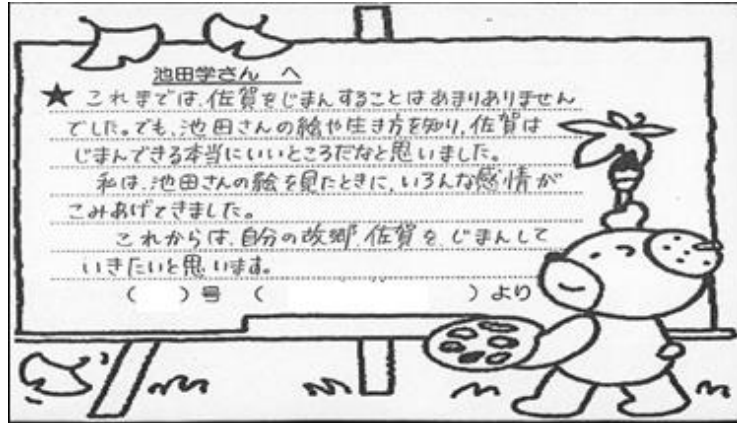 池田学さん へ
★ これまでは、佐賀をじまんすることはあまりありません
でした。でも、池田さんの絵や生き方を知り、佐賀は
じまんできる本当にいいところだなと思いました。
私は、池田さんの絵を見たときに、いろんな感情が
こみあげてきました。
これからは、自分の故郷、佐賀を、じまんして
いきたいと思います。
( ) 号 ( ) より